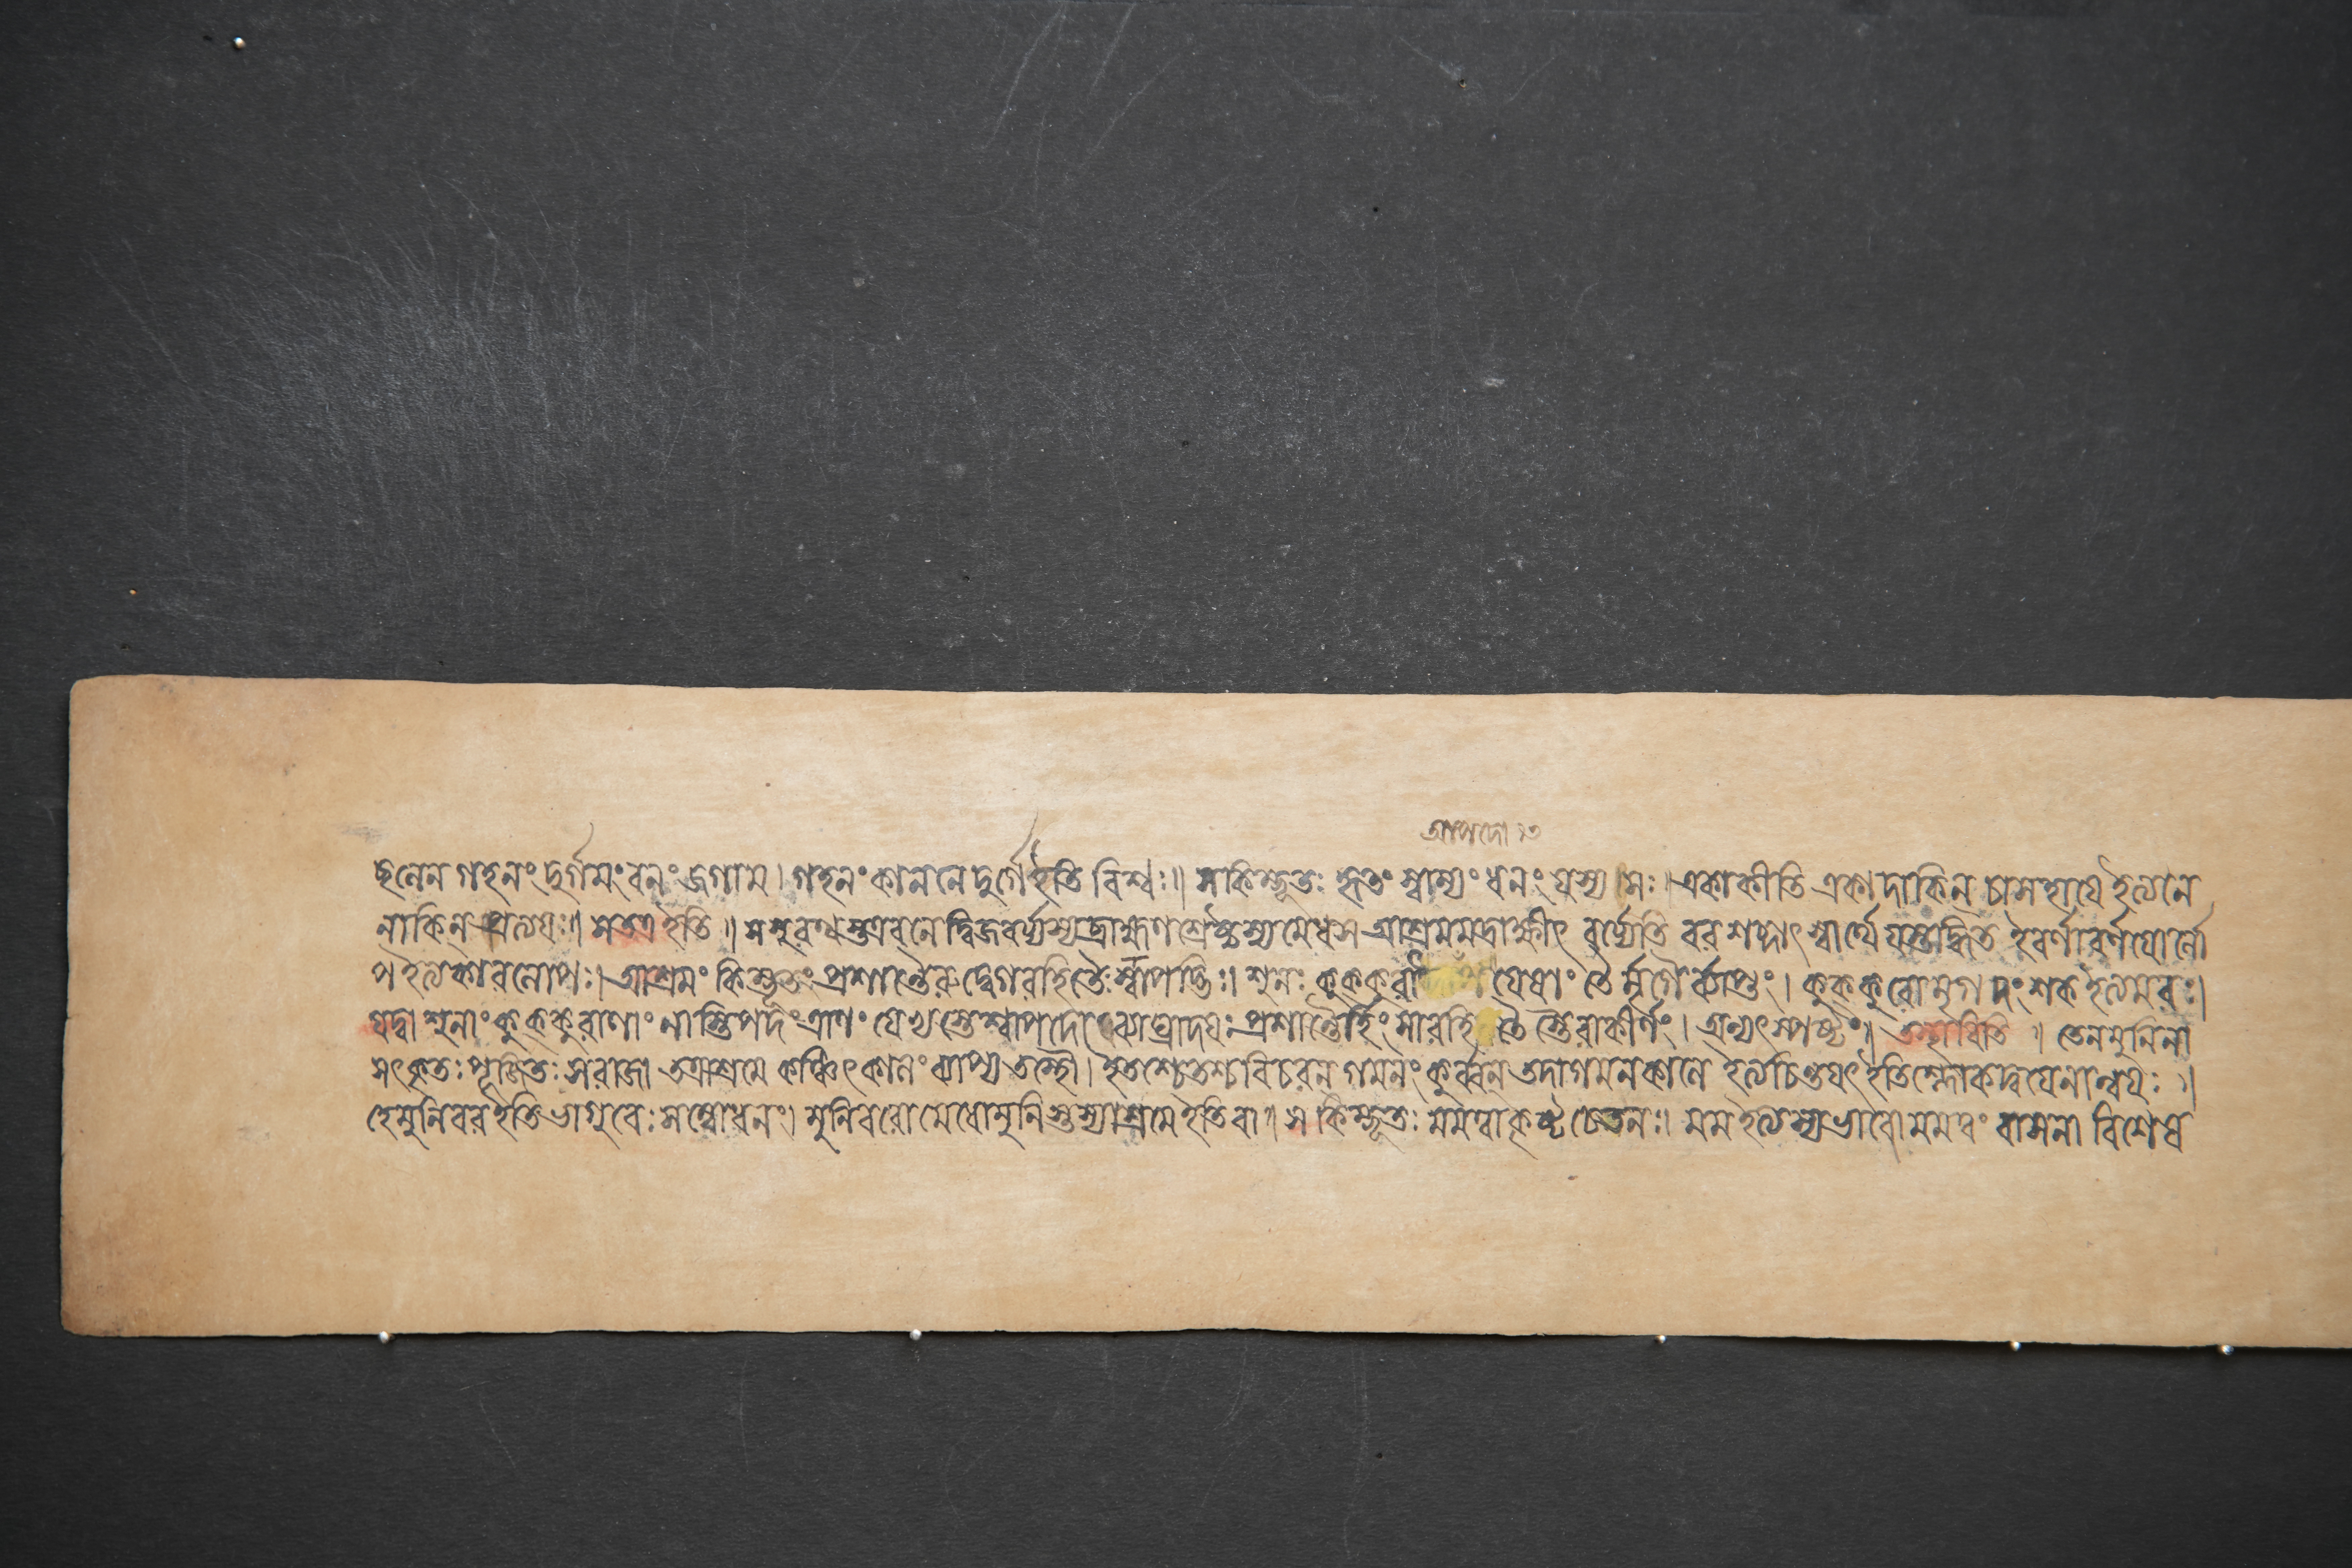 আপদো ১৩
ছলেন গহনং দুর্গমং বনং জগাম। গহনং কাননে দুর্গে ইতি বিশ্বঃ॥ স কিম্ভূতঃ হৃতং স্বাম্যং ধনং যস্য সঃ। একাকীতি একাদাকিন্ চাসহায়ে ইত্যনে
নাকিন্ প্রত্যয়ঃ॥ স তত্র ইতি॥ স সুরথস্তত্র বনে দ্বিজবর্য্যস্য ব্রাহ্মণশ্রেষ্ঠস্য মেধস আশ্রমমদ্রাক্ষীৎ বর্য্যেতি বরশব্দাৎ স্বার্থে যস্তদ্ধিত ইবর্ণাবর্ণয়োর্লো
প ইত্যকারলোপঃ। আশ্রমং কিম্ভূতং প্রশান্তৈরুদ্বেগরহিতৈঃ শ্বাপদ্ভিঃ। শুনঃ কুক্কুরা যেষাং তৈর্মৃগৈর্ব্যাপ্তং। কুক্কুরো মৃগদংশক ইত্যমরঃ।
যদ্বা শুনাং কুক্কুরাণাং নাস্তি পদং ত্রাণং যেভ্যস্তে শ্বাপদো ব্যাঘ্রাদয়ঃ প্রশান্তৈর্হিংসারহিতৈস্তৈরাকীর্ণং। অন্যৎ স্পষ্টং॥ তস্থাবিতি॥ তেন মুনিনা
সৎকৃতঃ পূজিতঃ স রাজা তত্রাশ্রমে কঞ্চিৎ কালং ব্যাপ্য তস্থৌ। ইতশ্চেতশ্চ বিচরন্ গমনং কুর্ব্বন্ তদাগমনকালে ইত্যচিন্তয়ৎ ইতি শ্লোকদ্বয়েনান্বয়ঃ॥
হে মুনিবর ইতি ভাগুরেঃ সম্বোধনং। মুনিবরো মেধোমুনিস্তস্যাশ্রমে ইতি বা॥ স কিম্ভূতঃ মমত্বাকৃষ্টচেতনঃ। মম ইত্যস্য ভাবো মমত্বং বাসনা বিশেষ